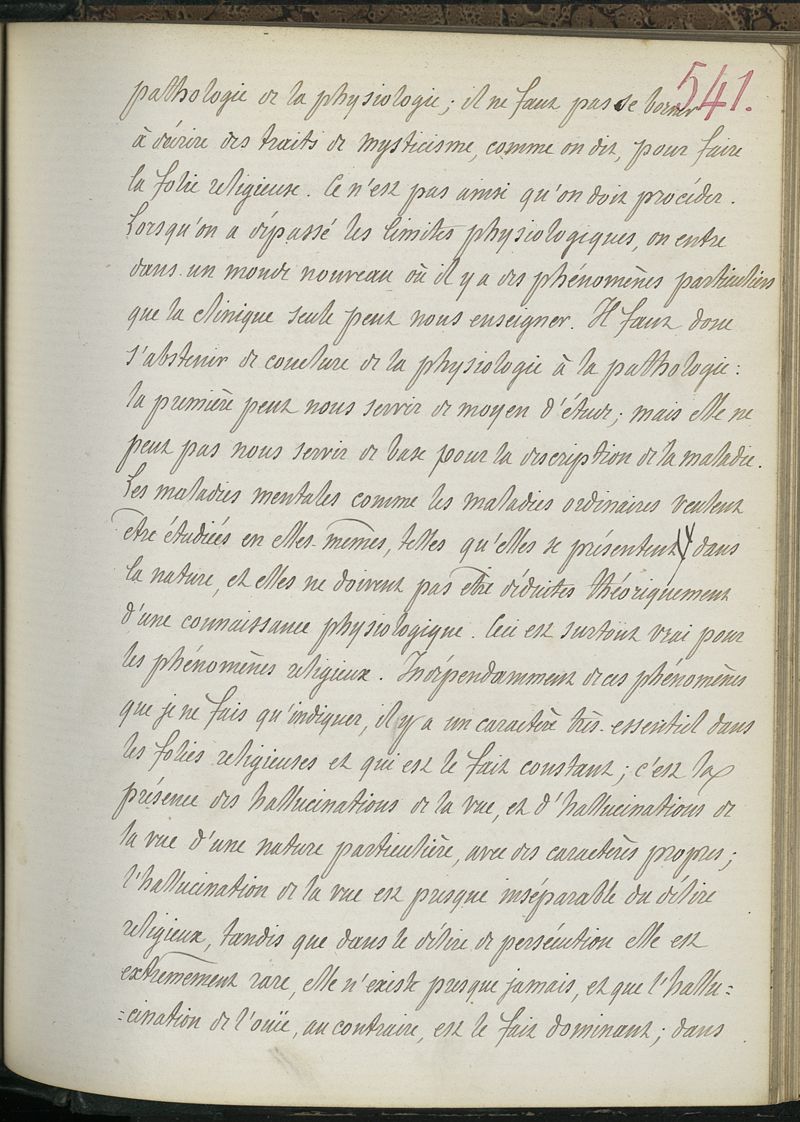 541.
pathologie de la physiologie; il ne faut pas se borner
à décrire des traits de mysticisme, comme on dit, pour faire
la folie religieuse. Ce n'est pas ainsi qu'on doit procéder.
Lorsqu'on a dépassé les limites physiologiques, on entre
dans un monde nouveau où il y a des phénomènes particuliers
que la clinique seule peut nous enseigner. Il faut donc
s'abstenir de conclure de la physiologie à la pathologie:
la première peut nous servir de moyen d'étude; mais elle ne
peut pas nous servir de base pour la description de la maladie.
Les maladies mentales comme les maladies ordinaires veulent
être étudiées en elles-mêmes, telles qu'elles se présentent dans
la nature, et elles ne doivent pas être déduites théoriquement
d'une connaissance physiologique. Ceci est surtout vrai pour
les phénomènes religieux. Indépendamment de ces phénomènes
que je ne fais qu'indiquer, il y a un caractère très-essentiel dans
les folies religieuses et qui est le fait constant; c'est la
présence des hallucinations de la vue, et d'hallucinations de
la vue d'une nature particulière, avec des caractères propres;
l'hallucination de la vue est presque inséparable du délire
religieux, tandis que dans le délire de persécution elle est
extrêmement rare, elle n'existe presque jamais, et que l'hallu=
=cination de l'ouïe, au contraire, est le fait dominant; dans